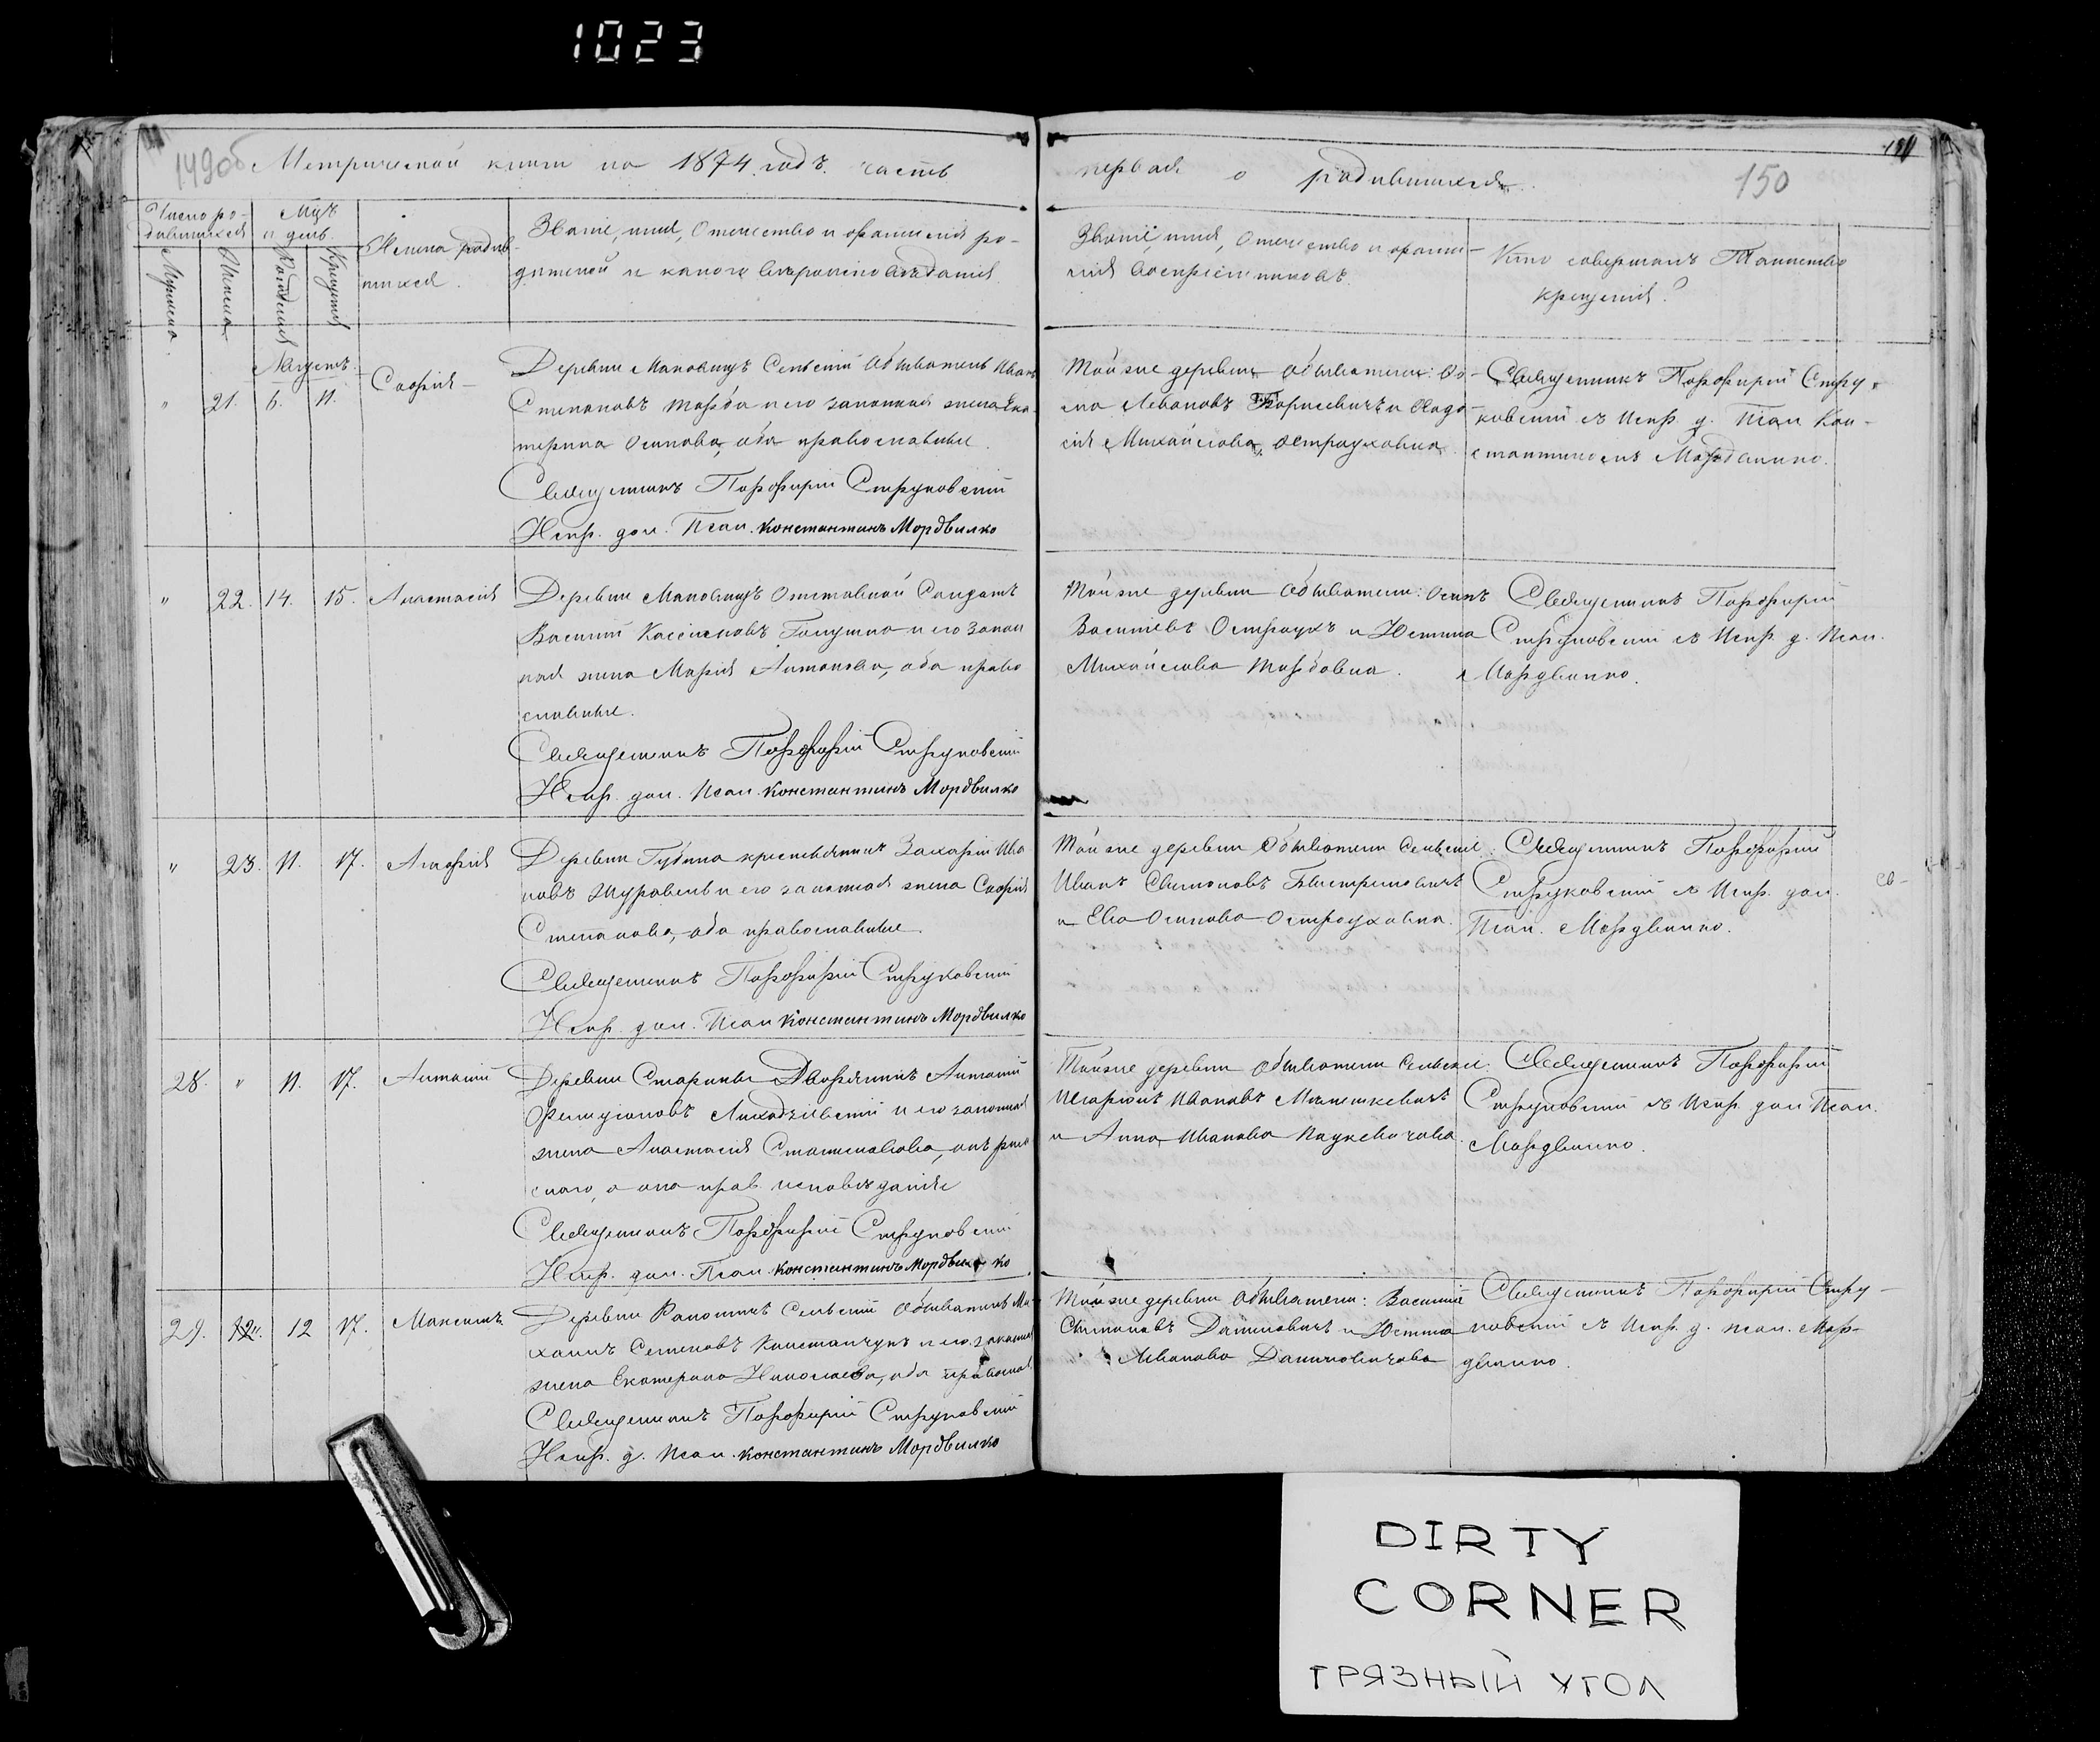 1023
149об Метрической книги на 1874 годъ часть
первая о родившихся.
150
Число ро-
дившихся
Мужеска.
Женска.
Мцъ
и день
Рожденія
Крещенія
Имена родив-
шихся.
Званіе, имя, Отечество и фамилія ро-
дителей и какого вѣроисповѣданія
Званіе, имя, Отечество и фами-
лія воспріемниковъ.
Кто совершалъ Таинство
крещенія?
Августъ
" 21. 6. 11. Софія
Деревни Маковищъ Сельскій Обыватель Иванъ
Степановъ и его законная жена Ека-
терина Осипова, оба православные.
Священникъ Порфирій Струковскій
Испр. дол. Псал. Константинъ Мордвилко
Той же деревни обыватели:
Борисевичъ и
Михайлова Остроуховна
Священникъ Порфирій Стру-
ковскій съ Испр. д. Псал. Кон-
стантиномъ Мордвилко.
" 22. 14. 15. Анастасія
Деревни Маковищъ Отставной Солдатъ
Василій и его закон
ная жена Марія Антонова, оба право
славные.
Священникъ Порфирій Струковскій
Испр. дол. Псал. Константинъ Мордвилко
Той же деревни обыватели: Осипъ
Васильевъ Остроухъ и Юстина
Михайлова
Священникъ Порфирій
Струковскій съ Испр. д. Псал.
Мордвилко.
" 23. 11. 17. Агафія
Деревни Губина крестьянинъ Захарій Ива
новъ Журавель и его законная жена Софія
Степанова, оба православные.
Священникъ Порфирій Струковскій
Испр. дол. Псал. Константинъ Мордвилко
Той же деревни Обыватели Сельскіе:
Иванъ
и Ева Осипова Остроуховна.
Священникъ Порфирій
Струковскій съ Испр. дол.
Псал. Мордвилко.
28. " 11. 17. Антоній
Деревни Старины Дворянинъ Антоній
и его законная
жена Анастасія Станиславова, онъ рим
скаго, а она прав. исповѣданія
Священникъ Порфирій Струковскій
Испр. дол. Псал. Константинъ Мордвилко
Той же деревни Обыватели Сельскіе:
Иванъ
и Анна Иванова
Священникъ Порфирій
Струковскій съ Испр. дол. Псал.
Мордвилко.
29. 12 17. Максимъ
Деревни Сельскій Обыватель Ми
хаилъ Семеновъ и его законная
жена Екатерина Николаева, оба православ
Священникъ Порфирій Струковскій
Испр. д. Псал. Константинъ Мордвилко
Той же деревни обыватели: Василій
Даниловичъ и Юстина
Иванова Даниловичова
Священникъ Порфирій Стру-
ковскій съ Испр. д. Псал. Мор-
двилко.
DIRTY
CORNER
ГРЯЗНЫЙ УГОЛ